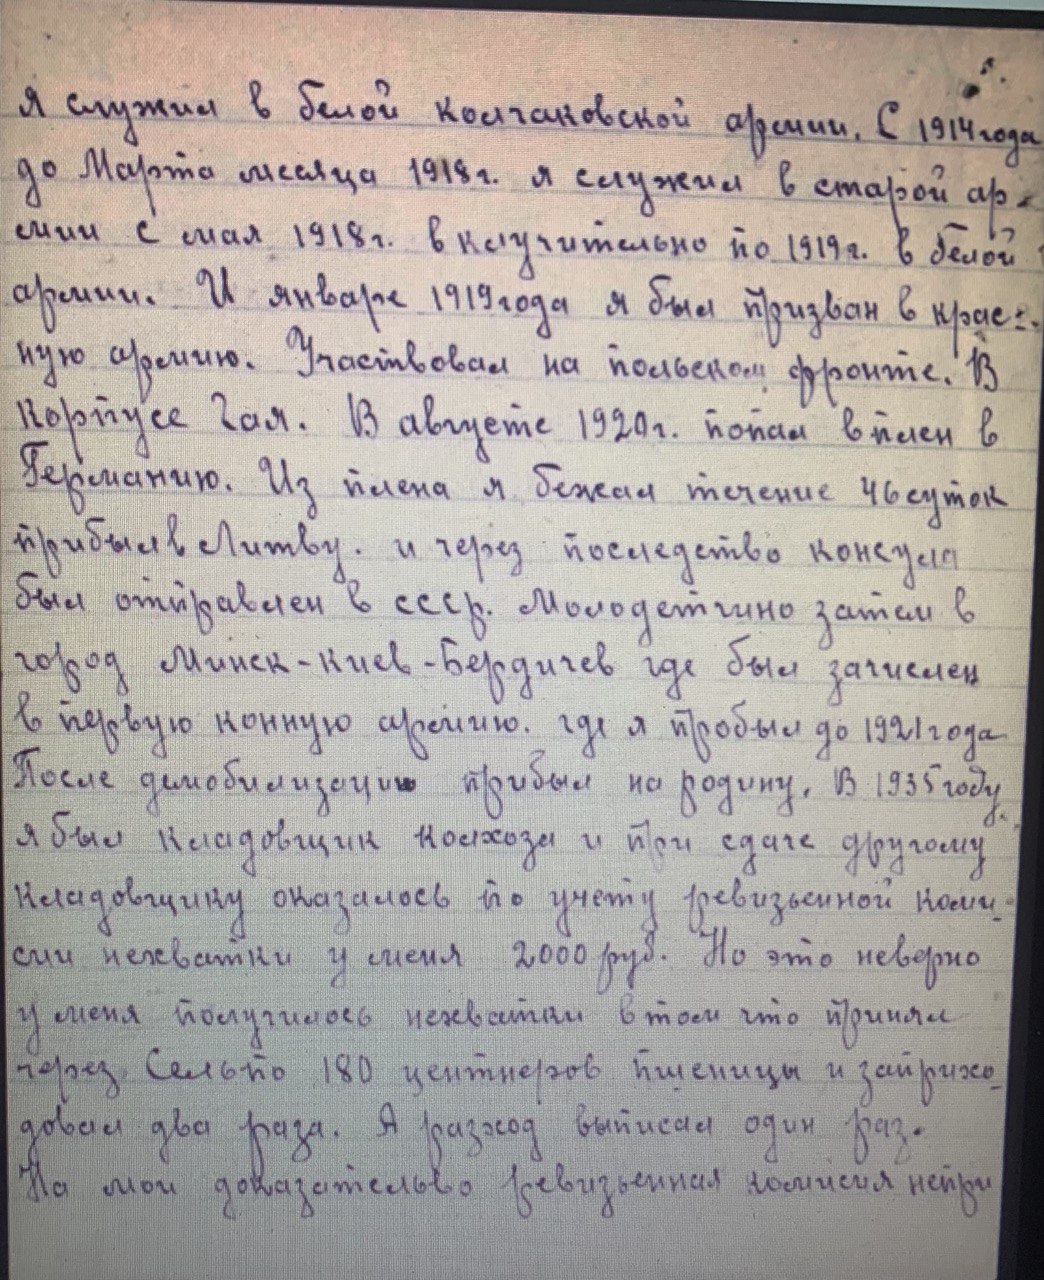 я служил в белой колчаковской армии. С 1914 года
до Марта месяца 1918 г. я служил в старой ар-
мии с мая 1918 г. включительно по 1919 г. в белой
армии. И январе 1919 года я был призван в крас-
ную армию. Участвовал на польском фронте. В
корпусе Гая. В августе 1920 г. попал в плен в
Германию. Из плена я бежал течение 46 суток
прибыл в Литву. и через последство консула
был отправлен в ссср. Молодетчино затем в
город Минск-Киев-Бердичев где был зачислен
в первую конную армию. где я пробыл до 1921 года
После демобилизации прибыл на родину. В 1935 году
я был кладовщик колхоза и при сдаче другому
кладовщику оказалось по учету ревизьенной коми-
сии нехватки у меня 2000 руб. Но это неверно
у меня получилось нехватки в том что принял
через Сельпо 180 центнеров пшеницы и заприхо-
довал два раза. А разход выписал один раз.
На мои доказательво ревизьенная комисия непри